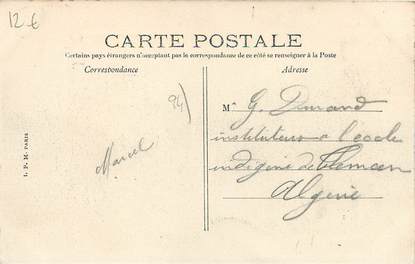 12 €
CARTE POSTALE
Certains pays étrangers n'acceptant pas la correspondance de ce côté se renseigner à la Poste
Correspondance
Adresse
94)
Marcel
Mr G. Durand
instituteur à l'école
indigène de Tlemcen
Algérie
I. P. M. PARIS